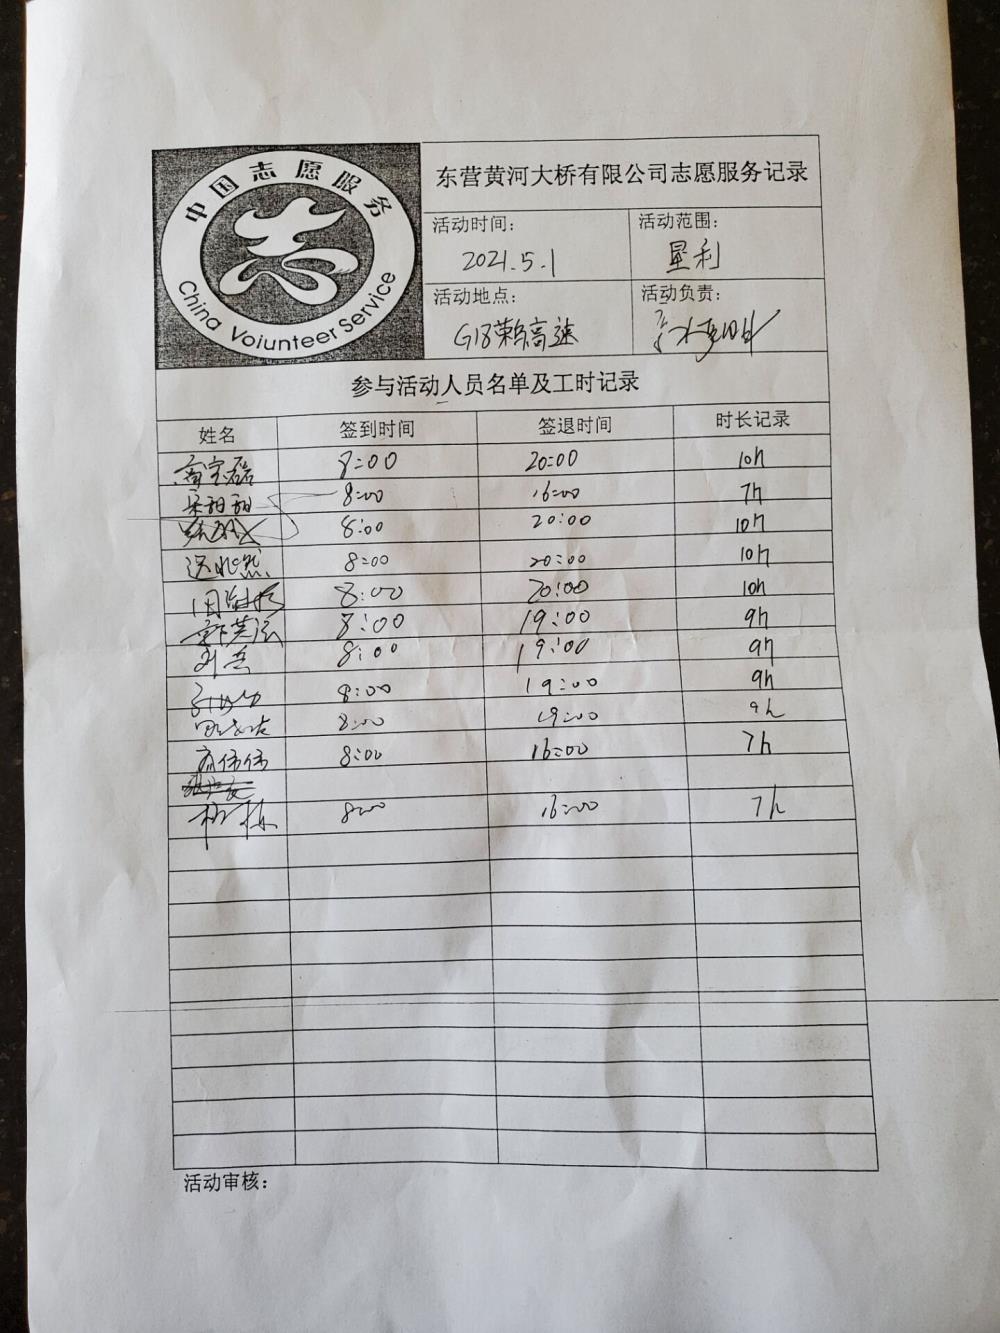 中国志愿服务
China VoiunteerService
东营黄河大桥有限公司志愿服务记录
活动时间: 活动范围:
2021.5.1 垦利
活动地点: 活动负责:
G18荣乌高速
参与活动人员名单及工时记录
姓名 签到时间 签退时间 时长记录
8:00 20:00 10h
8:00 16:00 7h
8:00 20:00 10h
8:00 20:00 10h
8:00 20:00 10h
8:00 19:00 9h
8:00 19:00 9h
8:00 19:00 9h
8:00 19:00 9h
8:00 16:00 7h
8:00 16:00 7h
活动审核: